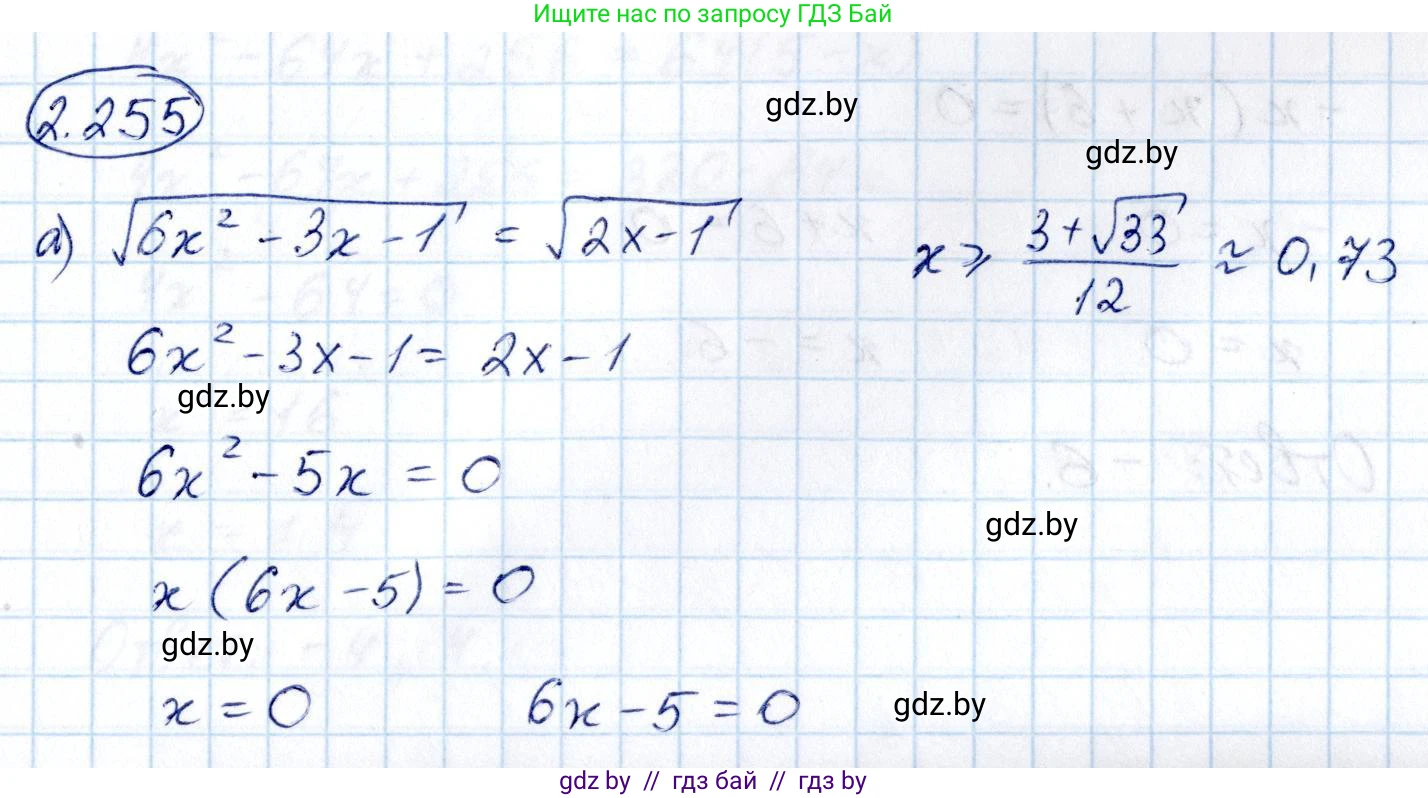 Ищите нас по запросу ГДЗ Бай
2.255
gdz.by
gdz.by
а) √(6x² - 3x - 1) = √(2x - 1)
x ⩾ (3 + √33)/12 ≈ 0,73
6x² - 3x - 1 = 2x - 1
gdz.by
6x² - 5x = 0
gdz.by
x (6x - 5) = 0
gdz.by
x = 0 6x - 5 = 0
gdz.by
gdz by // гдз бай // гдз by